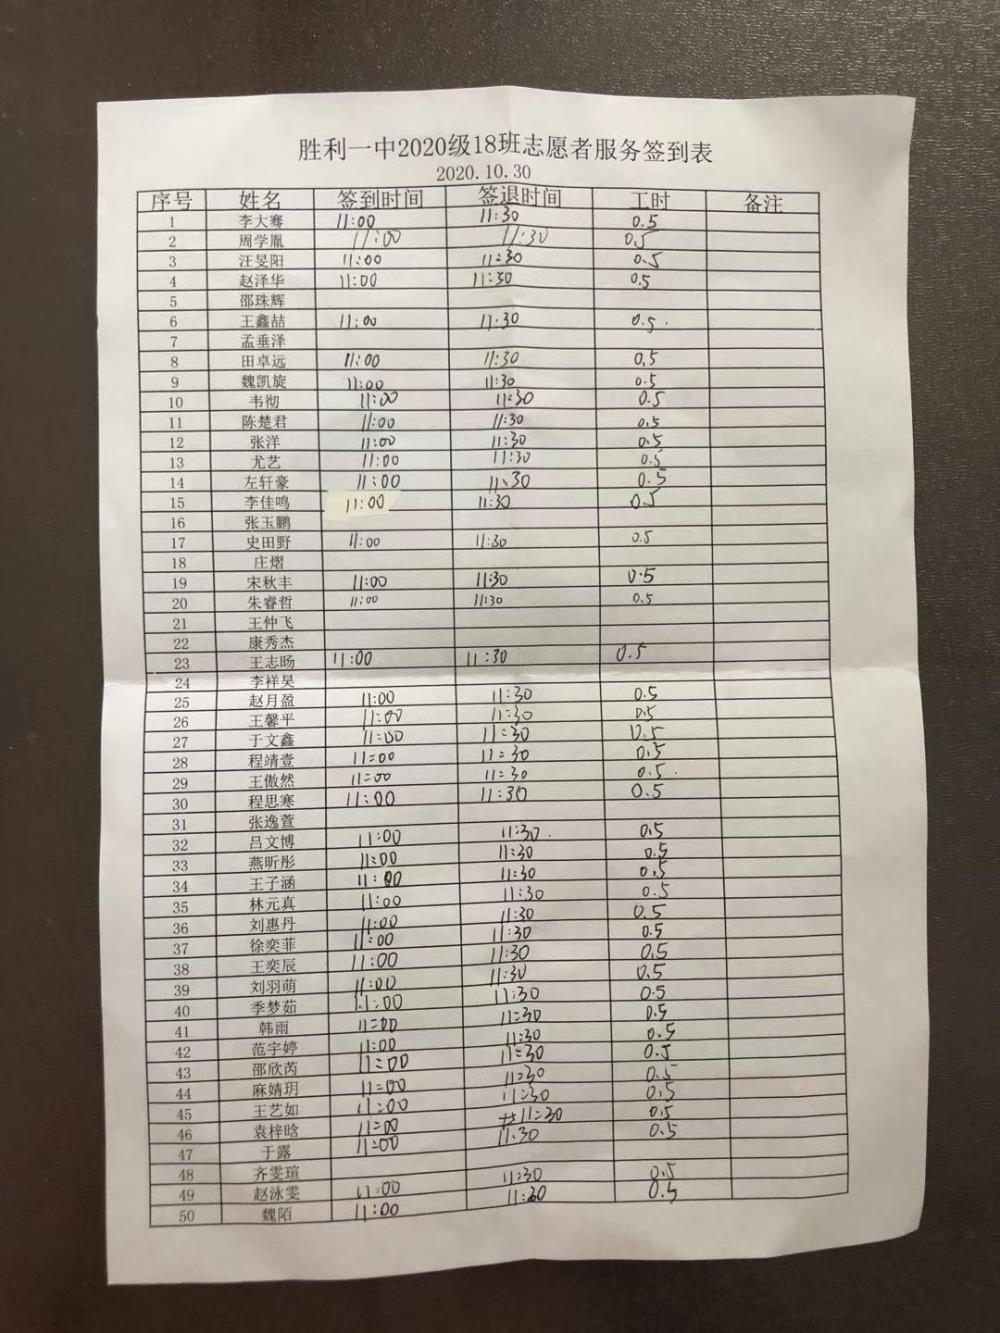 胜利一中2020级18班志愿者服务签到表
2020.10.30
序号 姓名 签到时间 签退时间 工时 备注
1 李大骞 11:00 11:30 0.5
2 周学胤 11:00 11:30 0.5
3 汪旻阳 11:00 11:30 0.5
4 赵泽华 11:00 11:30 0.5
5 邵珠辉
6 王鑫喆 11:00 11:30 0.5
7 孟垂泽
8 田卓远 11:00 11:30 0.5
9 魏凯旋 11:00 11:30 0.5
10 韦彻 11:00 11:30 0.5
11 陈楚君 11:00 11:30 0.5
12 张洋 11:00 11:30 0.5
13 尤艺 11:00 11:30 0.5
14 左轩豪 11:00 11:30 0.5
15 李佳鸣 11:00 11:30 0.5
16 张玉鹏
17 史田野 11:00 11:30 0.5
18 庄熠
19 宋秋丰 11:00 11:30 0.5
20 朱睿哲 11:00 11:30 0.5
21 王仲飞
22 康秀杰
23 王志旸 11:00 11:30 0.5
24 李祥昊
25 赵月盈 11:00 11:30 0.5
26 王馨平 11:00 11:30 0.5
27 于文鑫 11:00 11:30 0.5
28 程靖壹 11:00 11:30 0.5
29 王傲然 11:00 11:30 0.5
30 程思寒 11:00 11:30 0.5
31 张逸萱
32 吕文博 11:00 11:30 0.5
33 燕昕彤 11:00 11:30 0.5
34 王子涵 11:00 11:30 0.5
35 林元真 11:00 11:30 0.5
36 刘惠丹 11:00 11:30 0.5
37 徐奕菲 11:00 11:30 0.5
38 王奕辰 11:00 11:30 0.5
39 刘羽萌 11:00 11:30 0.5
40 季梦茹 11:00 11:30 0.5
41 韩雨 11:00 11:30 0.5
42 范宇婷 11:00 11:30 0.5
43 邵欣芮 11:00 11:30 0.5
44 麻婧玥 11:00 11:30 0.5
45 王艺如 11:00 11:30 0.5
46 袁梓晗 11:00 11:30 0.5
47 于露 11:00 11:30 0.5
48 齐雯瑄
49 赵泳雯 11:00 11:30 0.5
50 魏陌 11:00 11:30 0.5